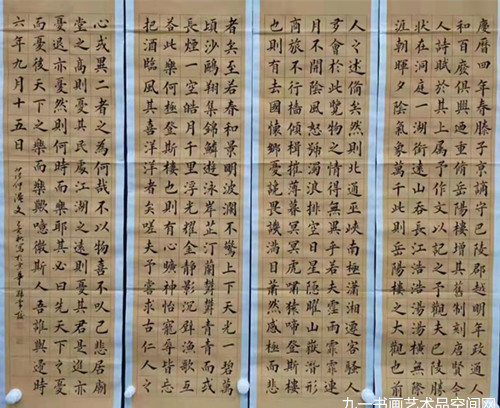 慶曆四年春滕子京謫守巴陵郡越明年政通人
和百廢俱興迺重脩岳陽樓增其舊制刻唐賢今
人詩賦於其上屬予作文以記之予觀夫巴陵勝
狀在洞庭一湖銜遠山吞長江浩浩湯湯橫無際
涯朝暉夕陰氣象萬千此則岳陽樓之大觀也前
人之述備矣然則北通巫峽南極瀟湘遷客騷人
多會於此覽物之情得無異乎若夫霪雨霏霏連
月不開陰風怒號濁浪排空日星隱曜山嶽潛形
商旅不行檣傾楫摧薄暮冥冥虎嘯猿啼登斯樓
也則有去國懷鄉憂讒畏譏滿目蕭然感極而悲
者矣至若春和景明波瀾不驚上下天光一碧萬
頃沙鷗翔集錦鱗游泳岸芷汀蘭鬱鬱青青而或
長煙一空皓月千里浮光耀金靜影沉璧漁歌互
答此樂何極登斯樓也則有心曠神怡寵辱皆忘
把酒臨風其喜洋洋者矣嗟夫予嘗求古仁人之
心或異二者之為何哉不以物喜不以己悲居廟
堂之高則憂其民處江湖之遠則憂其君是進亦
憂退亦憂然則何時而樂耶其必曰先天下之憂
而憂後天下之樂而樂歟噫微斯人吾誰與歸時
六年九月十五日
范仲淹文
九一书画艺术品空间网